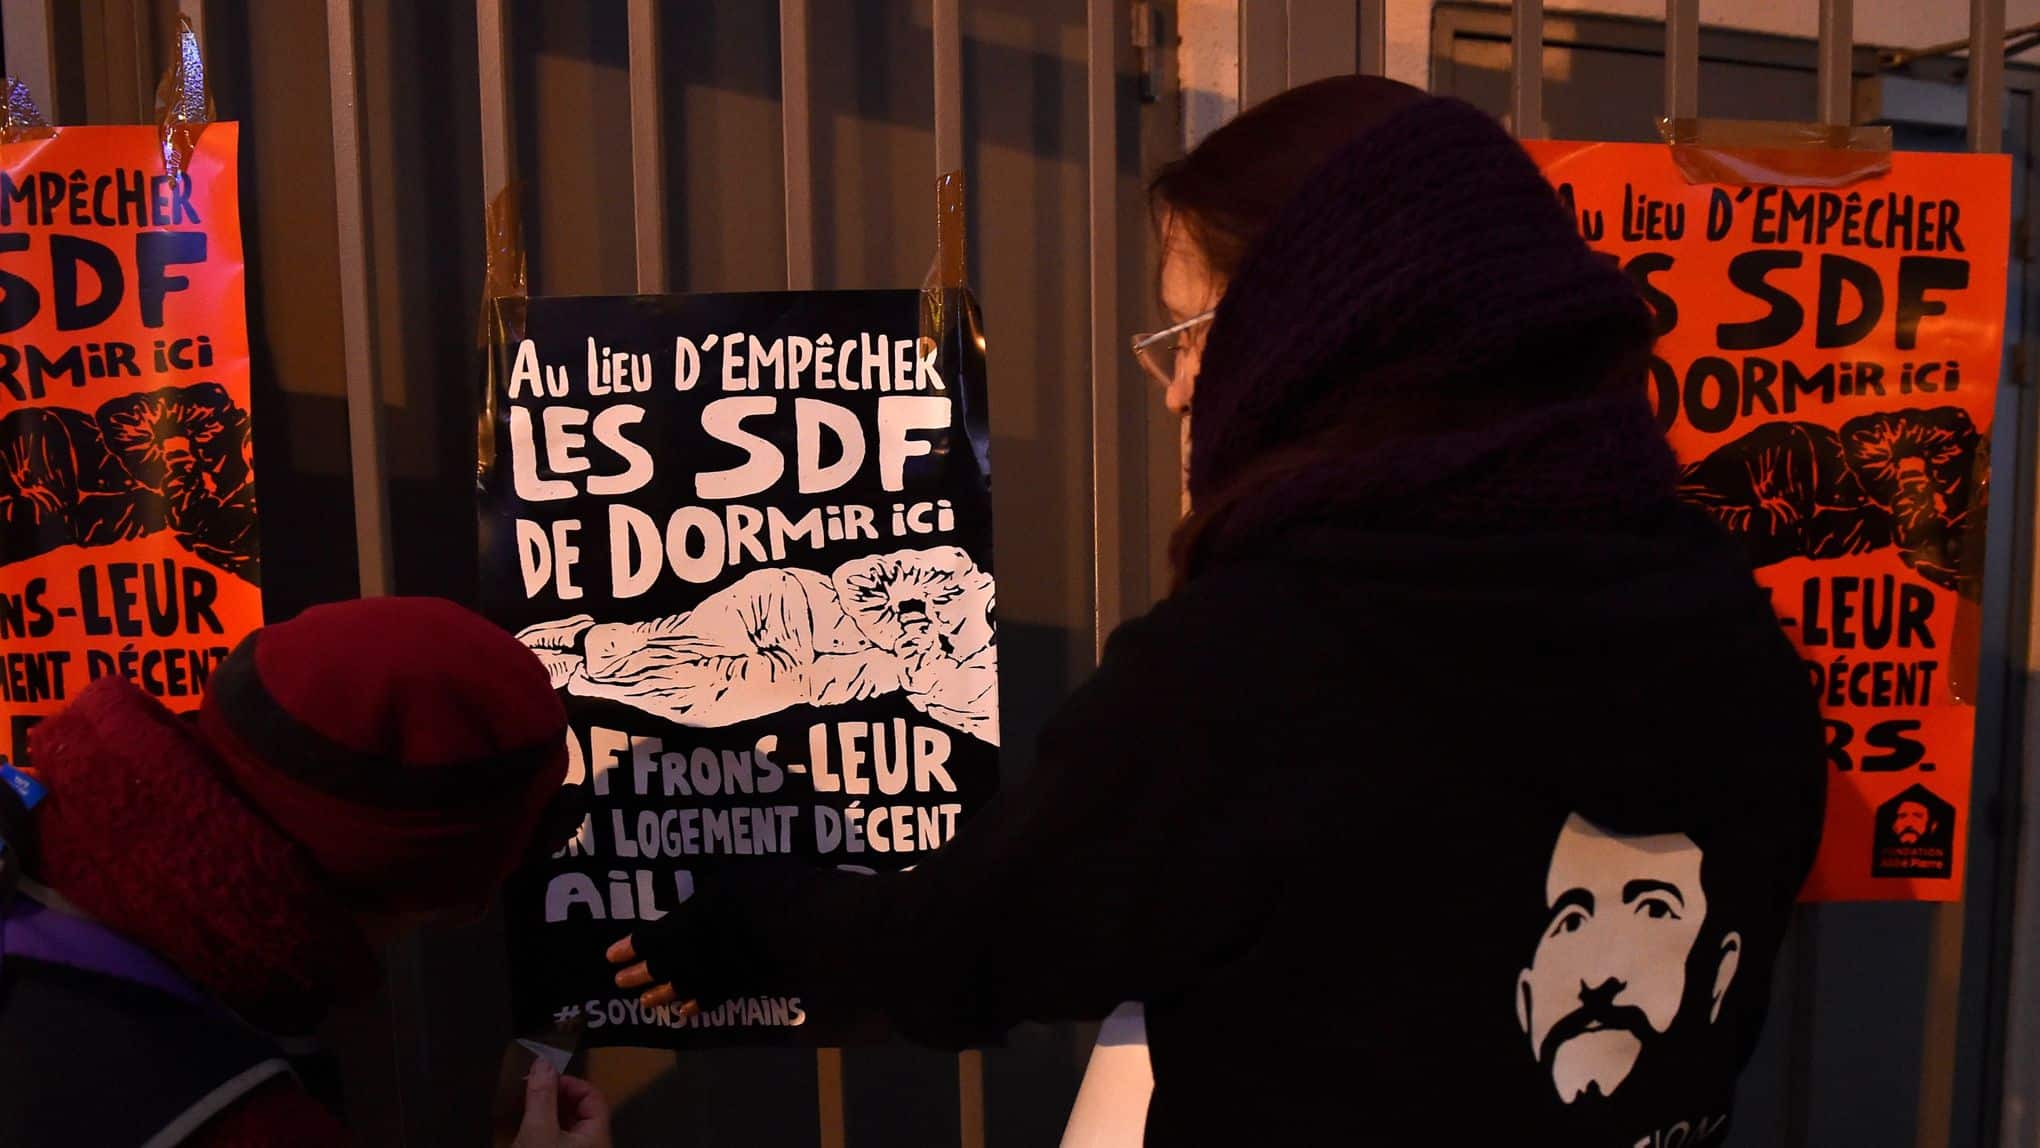 MPÊCHER
SDF
RMiR ici
NS-LEUR
MENT DÉCENT
Au Lieu D'EMPÊCHER
LES SDF
DE DORMiR ici
OFFRONS-LEUR
UN LOGEMENT DÉCENT
AiLL
#SOYONSHUMAINS
Au Lieu D'EMPÊCHER
S SDF
DORMiR ici
-LEUR
DÉCENT
RS.
FONDATION
Abbé Pierre